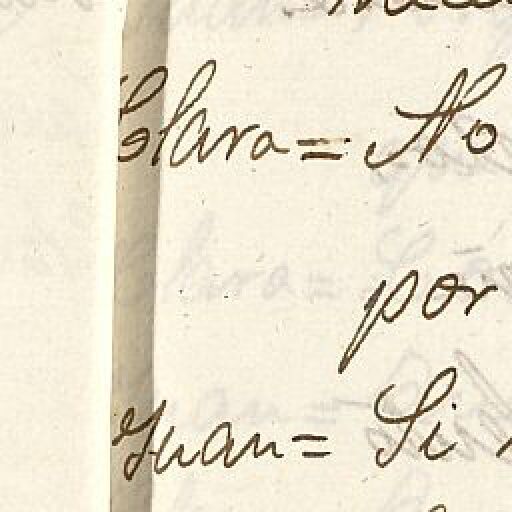 Clara = No
por
Juan = Si